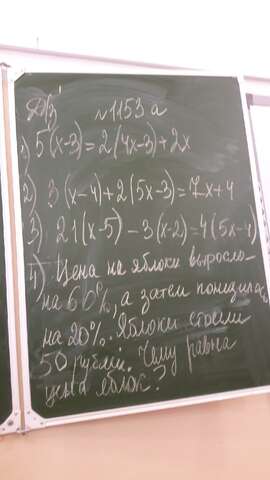 Д/з № 1153 а
1) 5(x-3)=2(4x-3)+2x
2) 3(x-4)+2(5x-3)=7x+4
3) 21(x-5)-3(x-2)=4(5x-4)
4) Цена на яблоки выросла
на 60%, а затем понизилась
на 20%. Яблоки стоили
50 рублей. Чему равна
цена яблок?